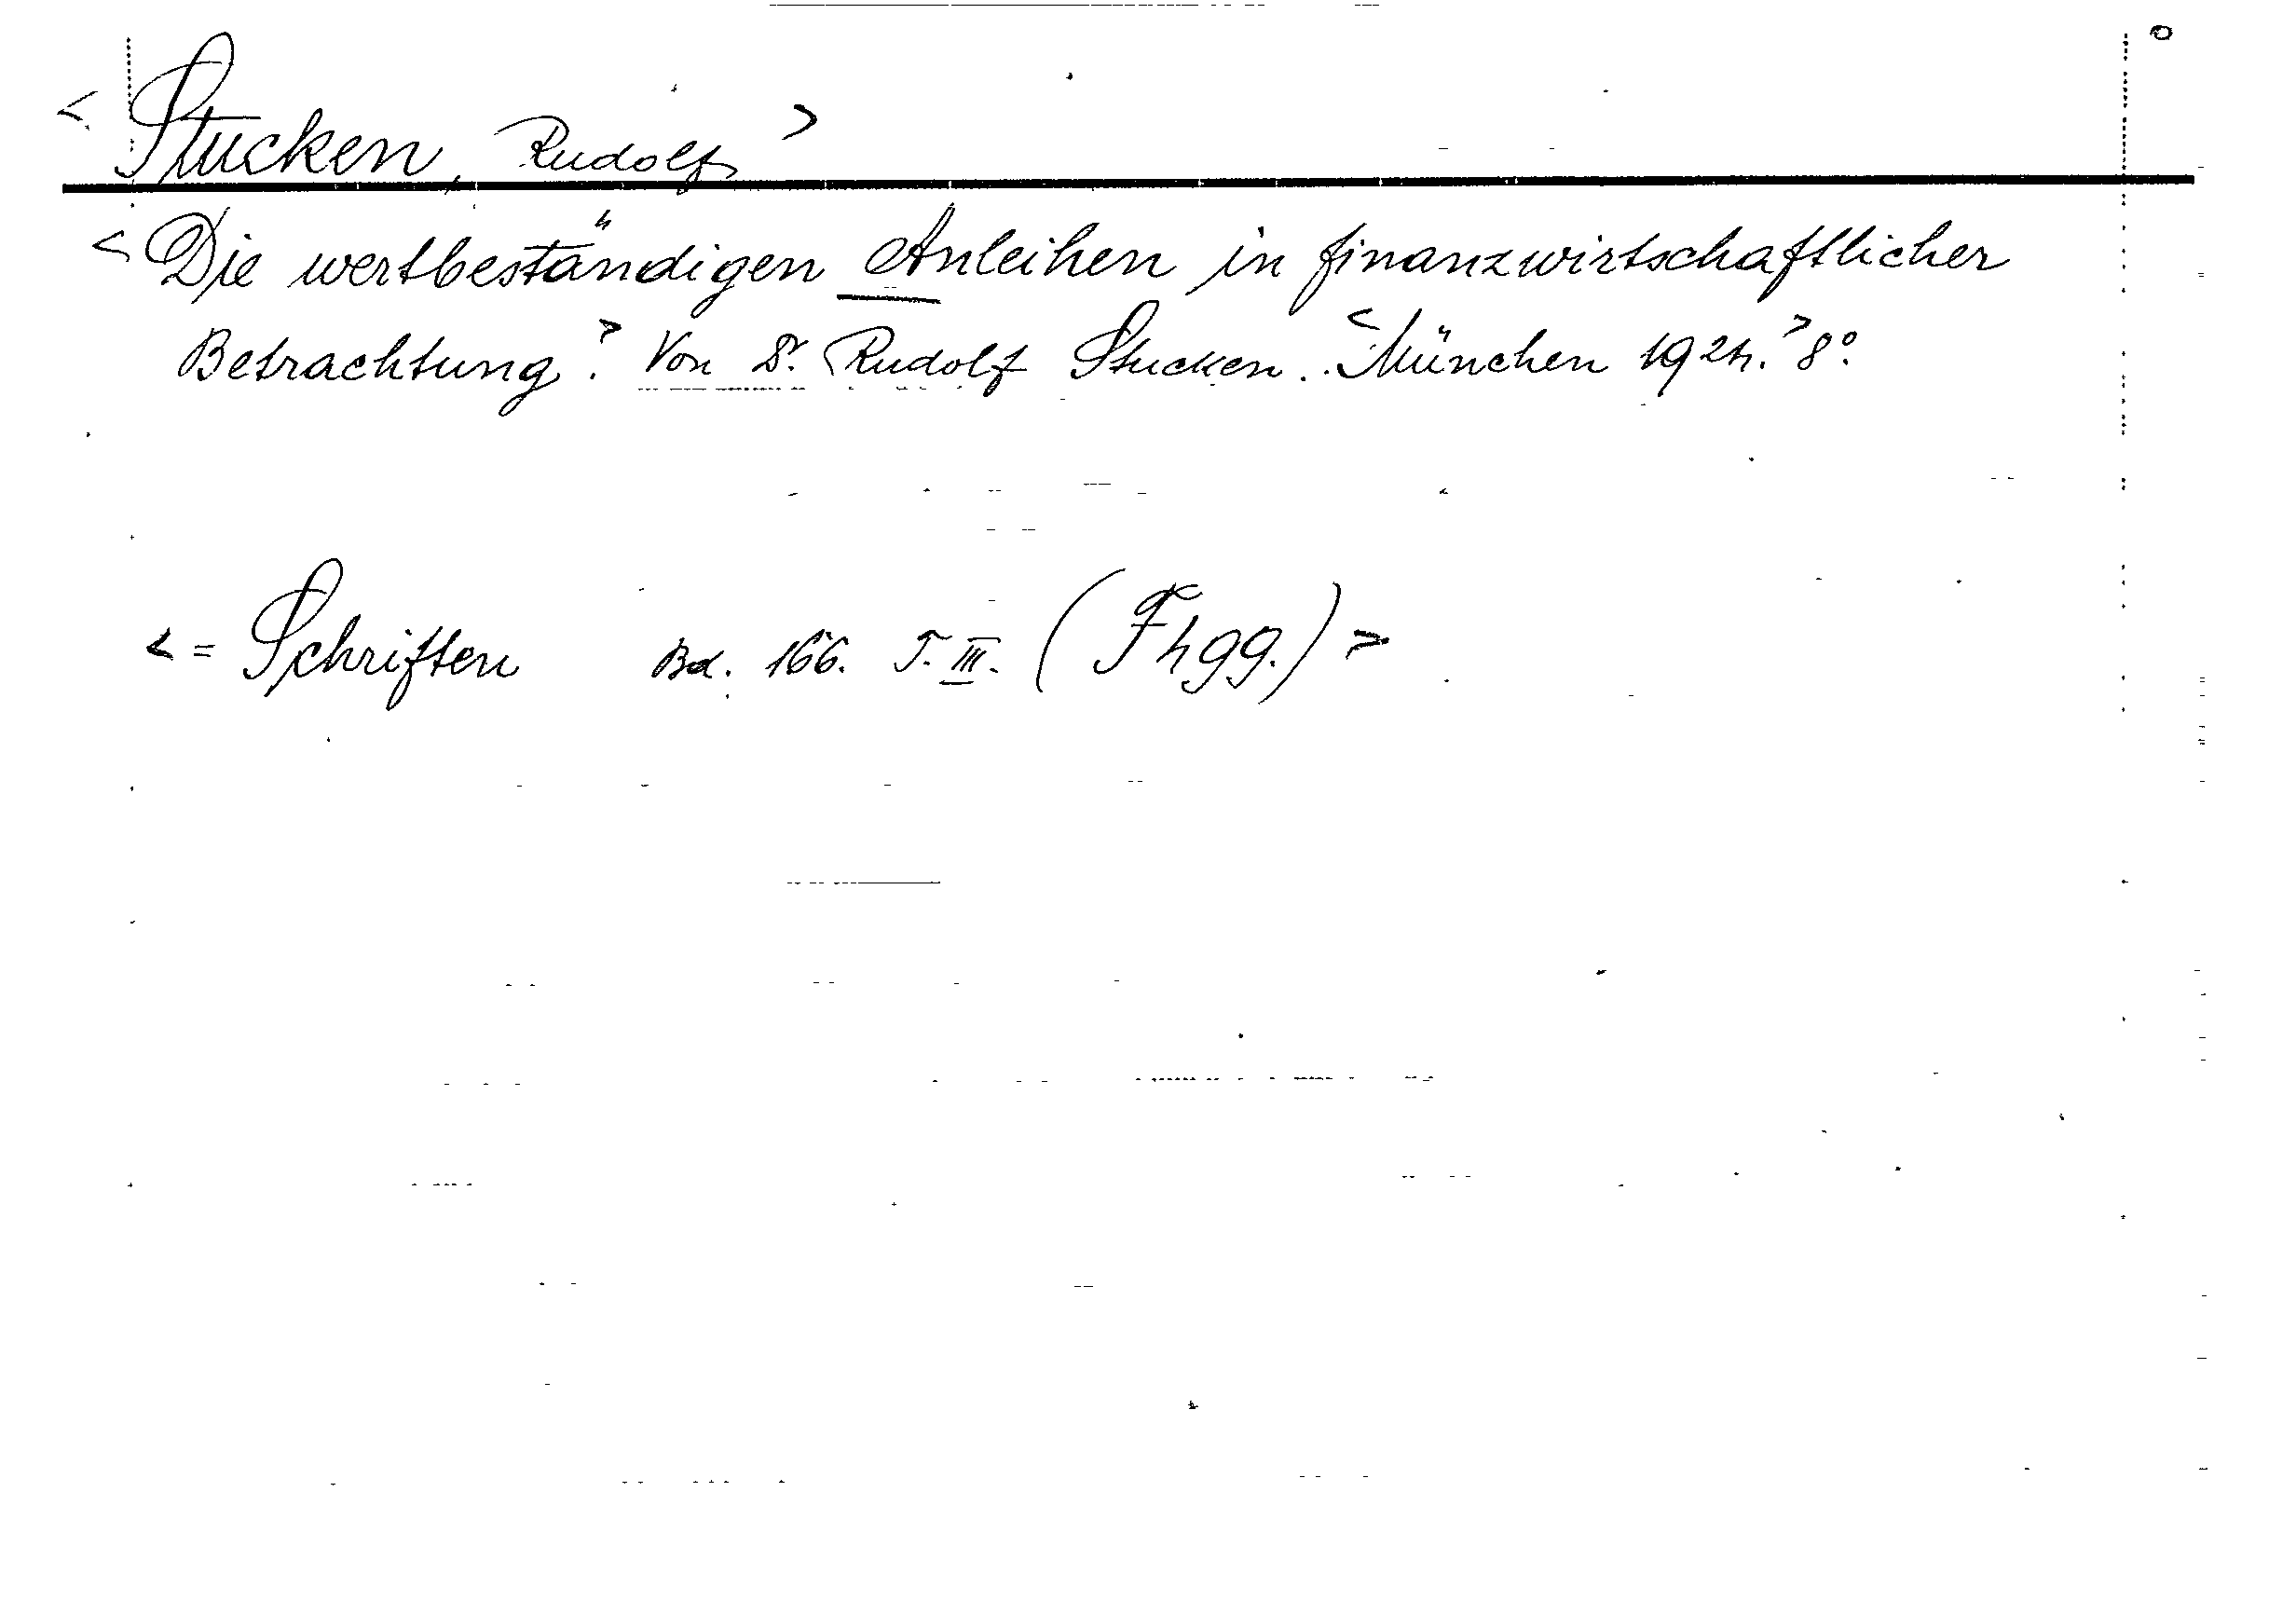 < Stucken, Rudolf >
< Die wertbeständigen Anleihen in finanzwirtschaftlicher
Betrachtung. > Von Dr. Rudolf Stucken. < München 1924. > 8°.
< = Schriften Bd. 166. T. III. (F 499.) >